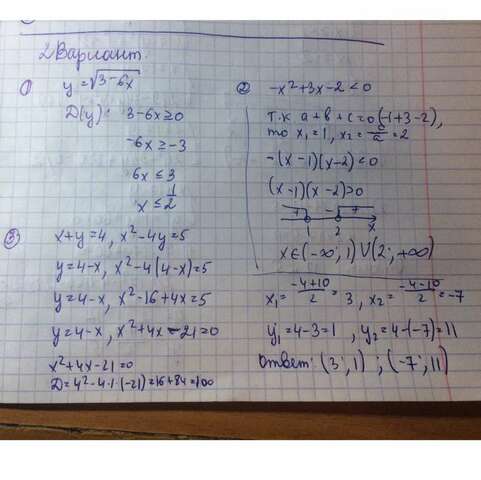 2 Вариант.
① y = √3-6x
D(y): 3-6x ≥ 0
-6x ≥ -3
6x ≤ 3
x ≤ 1/2
② -x²+3x-2 < 0
т.к a+b+c=0 (-1+3-2),
то x₁=1, x₂= c/a =2
-(x-1)(x-2) < 0
(x-1)(x-2) > 0
+ - +
1 2 x
x∈(-∞; 1) ∪ (2; +∞)
③ x+y=4, x²-4y=5
y=4-x, x²-4(4-x)=5
y=4-x, x²-16+4x=5
y=4-x, x²+4x-21=0
x²+4x-21=0
D=4²-4·1·(-21)=16+84=100
x₁= -4+10/2 = 3, x₂= -4-10/2 = -7
y₁=4-3=1, y₂=4-(-7)=11
Ответ: (3; 1); (-7; 11)